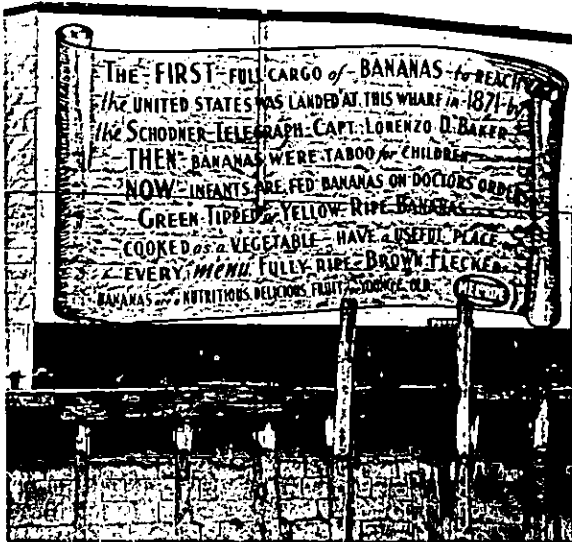 THE-FIRST-FULL CARGO of-BANANAS-to REACH
the UNITED STATES WAS LANDED AT THIS WHARF in-1871-by
the SCHOONER-TELEGRAPH-CAPT. LORENZO D. BAKER
THEN BANANAS WERE TABOO for CHILDREN
NOW INFANTS ARE FED BANANAS ON DOCTORS ORDERS
GREEN-TIPPED or YELLOW-RIPE BANANAS
COOKED as a VEGETABLE HAVE a USEFUL PLACE
EVERY menu FULLY RIPE-BROWN FLECKED
BANANAS are a NUTRITIOUS, DELICIOUS FRUIT OLD